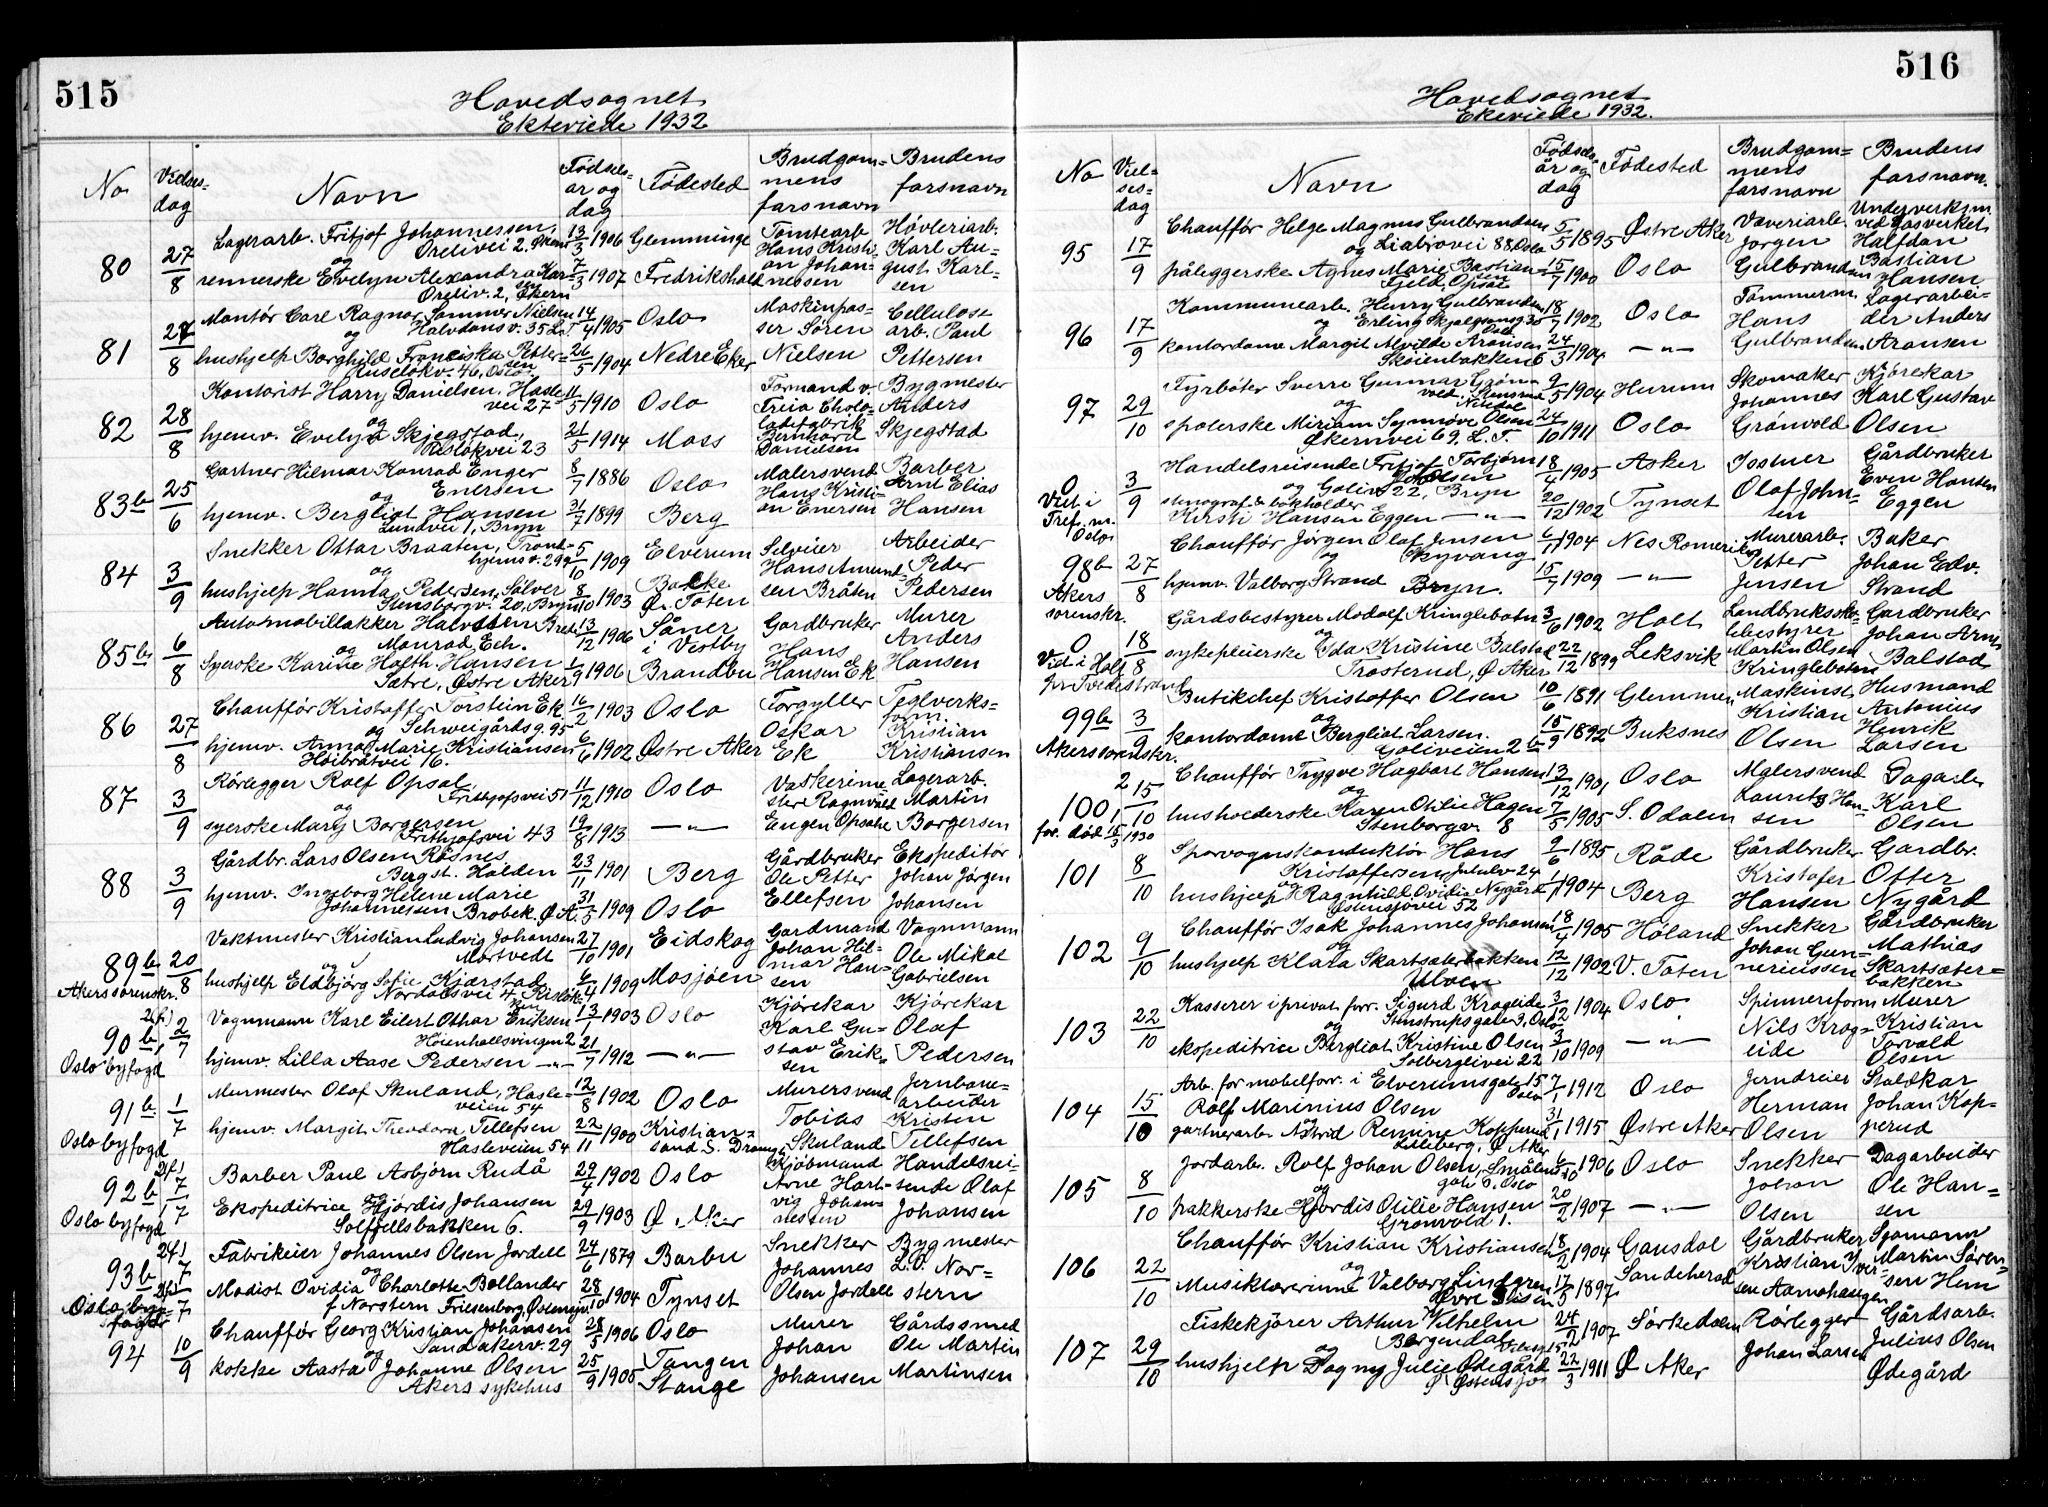 515
Hovedsognet
Ekteviede 1932
No.
Vielses-
dag
Navn
Fødsels-
år og
dag
Fødested
Brudgom-
mens
farsnavn
Brudens
farsnavn
80 27/8
Lagerarb. Fritjof Johannessen, 13/3 1906 Glemminge Tomtearb Høvleriarb.
og Orelivei 2, Økern Hans Kristi- Karl Au-
rennerske Evelyn Alexandra Karl- 7/3 1907 Fredrikshald an Johan- gust Karl-
sen Oreliv. 2, Økern nessen sen
81 27/8
Montør Carl Ragnar Sommer Nielsen 14/4 1905 Oslo Maskinpas- Cellulose
og Halvdansv. 35 L.T ser Søren arb. Paul
hushjelp Borghild Franciska Petter- 26/5 1904 Nedre Eker Nielsen Pettersen
sen Ruseløkv. 46, Oslo
82 28/8
Kontorist Harry Danielsen, Hasle- 11/5 1910 Oslo Formand v. Bygmester
vei 27 Freia Choko- Anders
og ladefabrik
hjemv. Evelyn Skjegstad, 21/5 1914 Moss Bernhard Skjegstad
Risløkvei 23 Danielsen
83b 25/6
Gartner Hilmar Konrad Enger 8/7 1886 Oslo Malersvend Barber
og Enersen Hans Kristi- Arnt Elias
hjemv. Bergliot Hansen 31/7 1899 Berg an Enersen Hansen
Lundvei 1, Bryn
84 3/9
Snekker Ottar Braaten, Trond- 5/10 1909 Elverum Selveier Arbeider
hjemsv. 299 Hans Amund- Peder
og
hushjelp Hamda Pedersen, Sølver 8/10 1903 Bakke sen Bråten Pedersen
Stensborgv. 20, Bryn Ø. Toten
85b 6/8
Automobillakker Halvsten Bred. 13/12 1906 Såner Gardbruker Murer
og Monrad Ech. i Vestby Hans Anders
Syerske Karine Holth Hansen 1/9 1906 Brandbu Hansen Ek Hansen
Sætre, Østre Aker
86 27/8
Chauffør Kristoffer Torstein Ek. 16/2 1903 Oslo Forgyller Teglverks-
og Schweigårdsg. 95 Oskar form.
hjemv. Anna Marie Kristiansen 6/6 1902 Østre Aker Ek Kristian
Høibråtvei 16. Kristiansen
87 3/9
Rørlegger Rolf Opsal 11/12 1910 Oslo Vaskerime- Lagerarb.
og Frithjofsvei 51 ster Ragnvald Martin
syerske Mary Borgersen 19/8 1913 — „ — Eugen Opsahl Borgersen
Frithjofsvei 43
88 3/9
Gårdbr. Lars Olsen Røsnes, 23/11 1901 Berg Gårdbruker Ekspeditør
Berg st. Halden Ole Petter Johan Jørgen
hjemv. Ingeborg Helene Marie 31/5 1909 Oslo Ellefsen Johansen
Johannessen Brobek. Ø.A.
89b 20/8
Akers sorenskr.
Vaktmester Kristian Ludvig Johansen 27/10 1901 Eidskog Gardmand Vognmann
og Mortvedt Johan Hil- Ole Mikal
hushjelp Eldbjørg Sofie Kjærstad 6/4 1909 Mosjøen mar Han- Gabrielsen
Nordalsvei 4 Risløk sen
90b, 2/7
Oslo byfogd
Vognmann Karl Eilert Othar Eriksen 13/1 1903 Oslo Kjørekar Kjørekar
Høienhallsvingen 2 Karl Gu- Olaf
hjemv. Lilla Aase Pedersen — „ — 21/7 1912 — „ — stav Erik- Pedersen
sen
91b. 1/7
Oslo byfogd
Murmester Olaf Skuland, Hasle- 12/8 1902 Oslo Murersvend Jernbane-
veien 54 Tobias arbeider
hjemv. Margit Theodora Tillefsen 22/11 1900 Kristian- Skuland Kristen
Hasleveien 54 sand S. Tillefsen
92b 1/7
Oslo byfogd
Barber Paul Asbjørn Rudå 29/4 1902 Oslo Kjøbmand Handelsrei-
og Arne Hart- sende Olaf
Ekspeditrice Hjørdis Johansen 29/9 1903 Ø Aker vig Johan- Johansen
Solfjellsbakken 6. nessen
93b 7/7
Oslo byfogd
Fabrikeier Johannes Olsen Jordell 24/6 1879 Barbu Snekker Bygmester
og Johannes L.O. Nor-
Modist Ovidia Charlotte Bollander 28/10 1904 Tynset Olsen Jordell stern
f. Norstern Friesenborg, Østensjøv.
94 10/9
Chauffør Georg Kristian Johansen 28/5 1906 Oslo Murer Gårdssmed
og Sandakerv. 29 Johan Ole Martin
kokke Aasta Johanne Olsen 25/9 1905 Tangen Johansen Martinsen
Akers sykehus Stange
516
Hovedsognet
Ekeviede 1932.
No
Viel-
ses-
dag
Navn
Fødsels-
år og
dag
Fødested
Brudgom-
mens
farsnavn
Brudens
farsnavn.
95 17/9
Chauffør Helge Magnus Gulbrandsen 5/5 1895 Østre Aker Væveriarb. Underverksm.
og Liabrovei 88, Oslo Jørgen ved Gasverket
påleggerske Agnes Marie Bastian- 15/7 1900 Oslo Gulbrandsen Halfdan
Gjeld, Opsal Bastian
Hansen
96 17/9
Kommunearb. Henry Gulbrandsen 18/7 1902 Oslo Tømmerm. Lagerarbei-
og Erling Skjalgsonsg 30 Oslo Hans der Anders
kontordame Margit Alvilde Aronsen 24/3 1904 — „ — Gulbrandsen Aronsen
Skøienbakken 6
97 29/10
Fyrbøter Sverre Gunnar Grøn- 9/5 1904 Hurum Skomaker Kjørekar
vold, Stensrud Johannes Karl Gustav
og Nitedal
spolerske Miriam Synnøve Olsen 24/10 1911 Oslo Grønvold Olsen
Økernvei 69, L.T.
0 3/9
Viet i
Tref. m.
Oslo
Handelsreisende Fritjof Torbjørn 18/4 1905 Asker Postmer Gårdbruker
Olsen
og Goliv 22, Bryn Olaf John- Even Hansen
stenograf & bokholder
Kirsti Hansen Eggen — „ — 20/12 1902 Tynset sen Eggen
98b 27/8
Akers
sorenskr.
Chauffør Jørgen Olaf Jensen 6/11 1904 Nes Romerike Murerarb. Baker
og Skyvang Petter Johan Edv.
hjemv. Valborg Strand Bryn. 15/7 1909 — „ — Jensen Strand
0 18/8
Vid i Holt
pr Tvedestrand
Gårdsbestyrer Modolf Kringlebotn 3/6 1902 Holt Landbruksko- Gardbruker
og lebestyrer Johan Arnt
sykepleierske Ida Kristine Balstad 22/12 1899 Leksvik Martin Olsen Balstad
Trosterud, Ø Aker Kringlebotn
99b 3/9
Akers sorenskr.
Butikchef Kristoffer Olsen 10/6 1891 Glemmen Maskinist Husmand
og Kristian Antonius
kontordame Bergliot Larsen. 15/9 1892 Buksnes Olsen Henrik
Goliveien 2 b Larsen
100, 15/10
for. død 15/3 1930
Chauffør Trygve Hagbart Hansen 13/12 1901 Oslo Malersvend Dagarb.
og Lauretz Han- Karl
husholderske Karen Otilie Hagen 7/5 1905 S. Odalen sen Olsen
Stenborgv. 8
101 8/10
Sporvognskonduktør Hans 9/6 1895 Råde Gårdbruker Gardbr.
Kristoffersen, Jululv 24 Kristofer Otter
hushjelp og Ragnhild Ovidia Nygård 1/1 1904 Berg Hansen Nygård
Østensjøvei 52
102 9/10
Chauffør Isak Johannes Johansen 18/4 1905 Høland Snekker Gårdbruker
og Johan Gun- Mathias
hushjelp Klara Skartsæterbakken 12/12 1902 V. Toten neriussen Skartsæter-
Ulven bakken
103 22/10
Kasserer i privat forr. Sigurd Krogeide 3/12 1904 Oslo Spinneriform Murer
og Stenstrupsgate 9, Oslo Nils Krog- Kristian
ekspeditrice Bergliot Kristine Olsen 3/10 1909 — „ — eide Torvald
Solberglivei 22 Olsen
104 15/10
Arb. for mobelforr. i Elverumsgate 15 7/1 1912 Oslo Jerndreier Staldkar
Oslo
Rolf Marinius Olsen Herman Johan Kop-
og
gartnerarb. Astrid Remine Kopperud 31/1 1915 Østre Aker Olsen perud
Lilleberg, Ø Aker
105 8/10
Jordarb. Rolf Johan Olsen, Smålens- 6/10 1906 Oslo Snekker Dagarbeider
og gate 6, Oslo Johan Ole Han-
pakkerske Hjørdis Otilie Hansen 20/2 1907 — „ — Olsen sen
Grønvold 1.
106 22/10
Chauffør Kristian Kristiansen 18/2 1904 Gausdal Gårdbruker Sjømann
og Kristian Iver- Martin Søren-
Musiklærerinne Valborg Lindgren 17/5 1897 Sandeherad sen Aamohaugen sen Hem
Øvre Disen
107 29/10
Fiskekjører Arthur Vilhelm 24/2 1907 Sørkedalen Rørlegger Gårdsarb.
og Bergendal Johan Larsen Julius Olsen
hushjelp Dagny Julie Ødegård 22/3 1911 Ø Aker Ødegård
Ø Østensjø